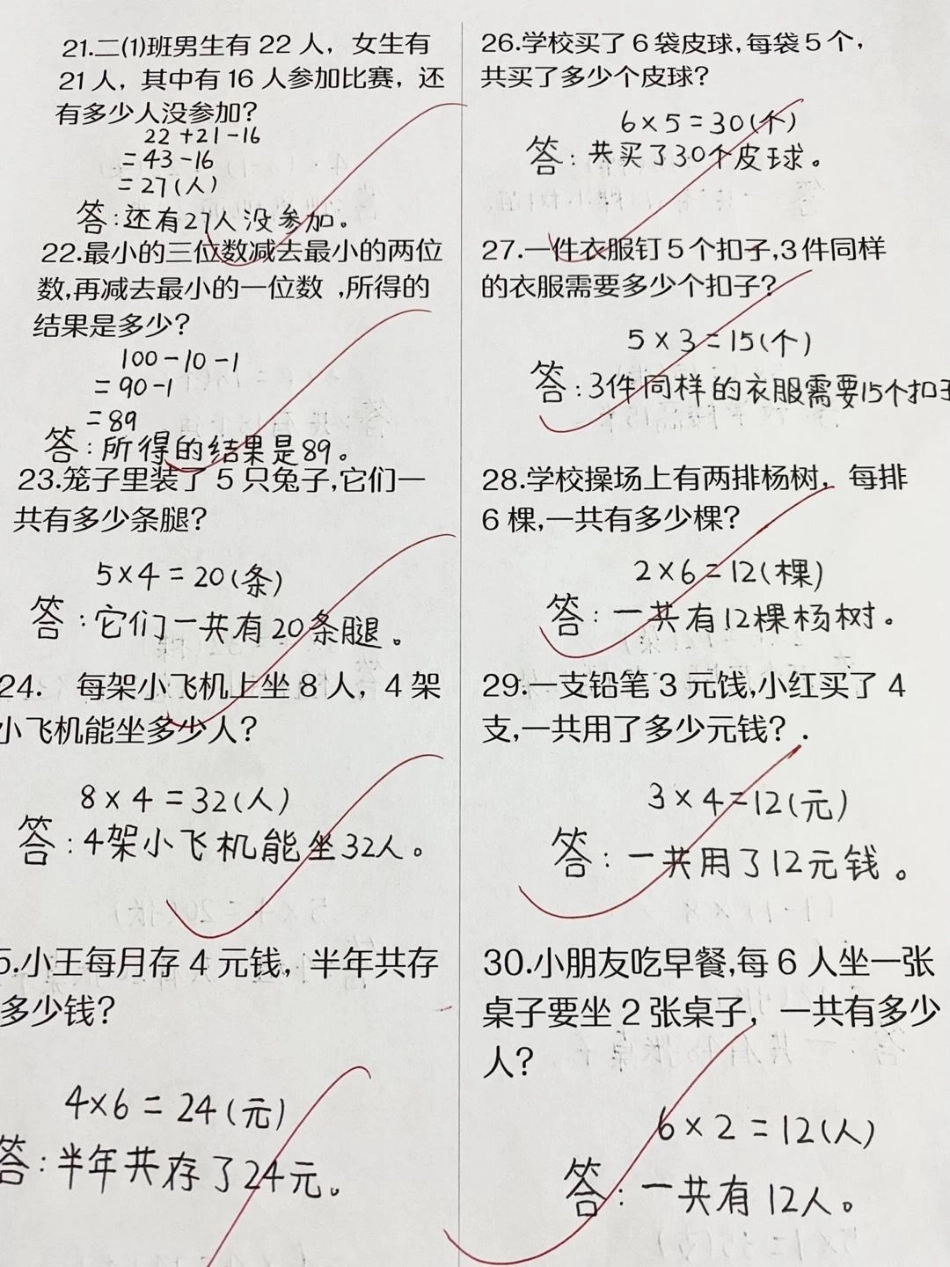 21.二(1)班男生有 22 人，女生有
21人，其中有 16 人参加比赛，还
有多少人没参加？
22+21-16
=43-16
=27(人)
答:还有27人没参加。
22.最小的三位数减去最小的两位
数,再减去最小的一位数 ,所得的
结果是多少？
100-10-1
=90-1
=89
答:所得的结果是89。
23.笼子里装了 5 只兔子,它们一
共有多少条腿？
5×4=20(条)
答:它们一共有20条腿。
24. 每架小飞机上坐 8 人，4 架
小飞机能坐多少人？
8×4=32(人)
答:4架小飞机能坐32人。
5.小王每月存 4 元钱，半年共存
多少钱？
4×6=24(元)
答:半年共存了24元。
26.学校买了 6 袋皮球,每袋 5 个，
共买了多少个皮球？
6×5=30(个)
答:共买了30个皮球。
27.一件衣服钉 5 个扣子,3 件同样
的衣服需要多少个扣子？
5×3=15(个)
答:3件同样的衣服需要15个扣子
28.学校操场上有两排杨树，每排
6 棵,一共有多少棵？
2×6=12(棵)
答:一共有12棵杨树。
29.一支铅笔 3 元饯,小红买了 4
支,一共用了多少元钱？.
3×4=12(元)
答:一共用了12元钱。
30.小朋友吃早餐,每 6 人坐一张
桌子要坐 2 张桌子，一共有多少
人？
6×2=12(人)
答:一共有12人。